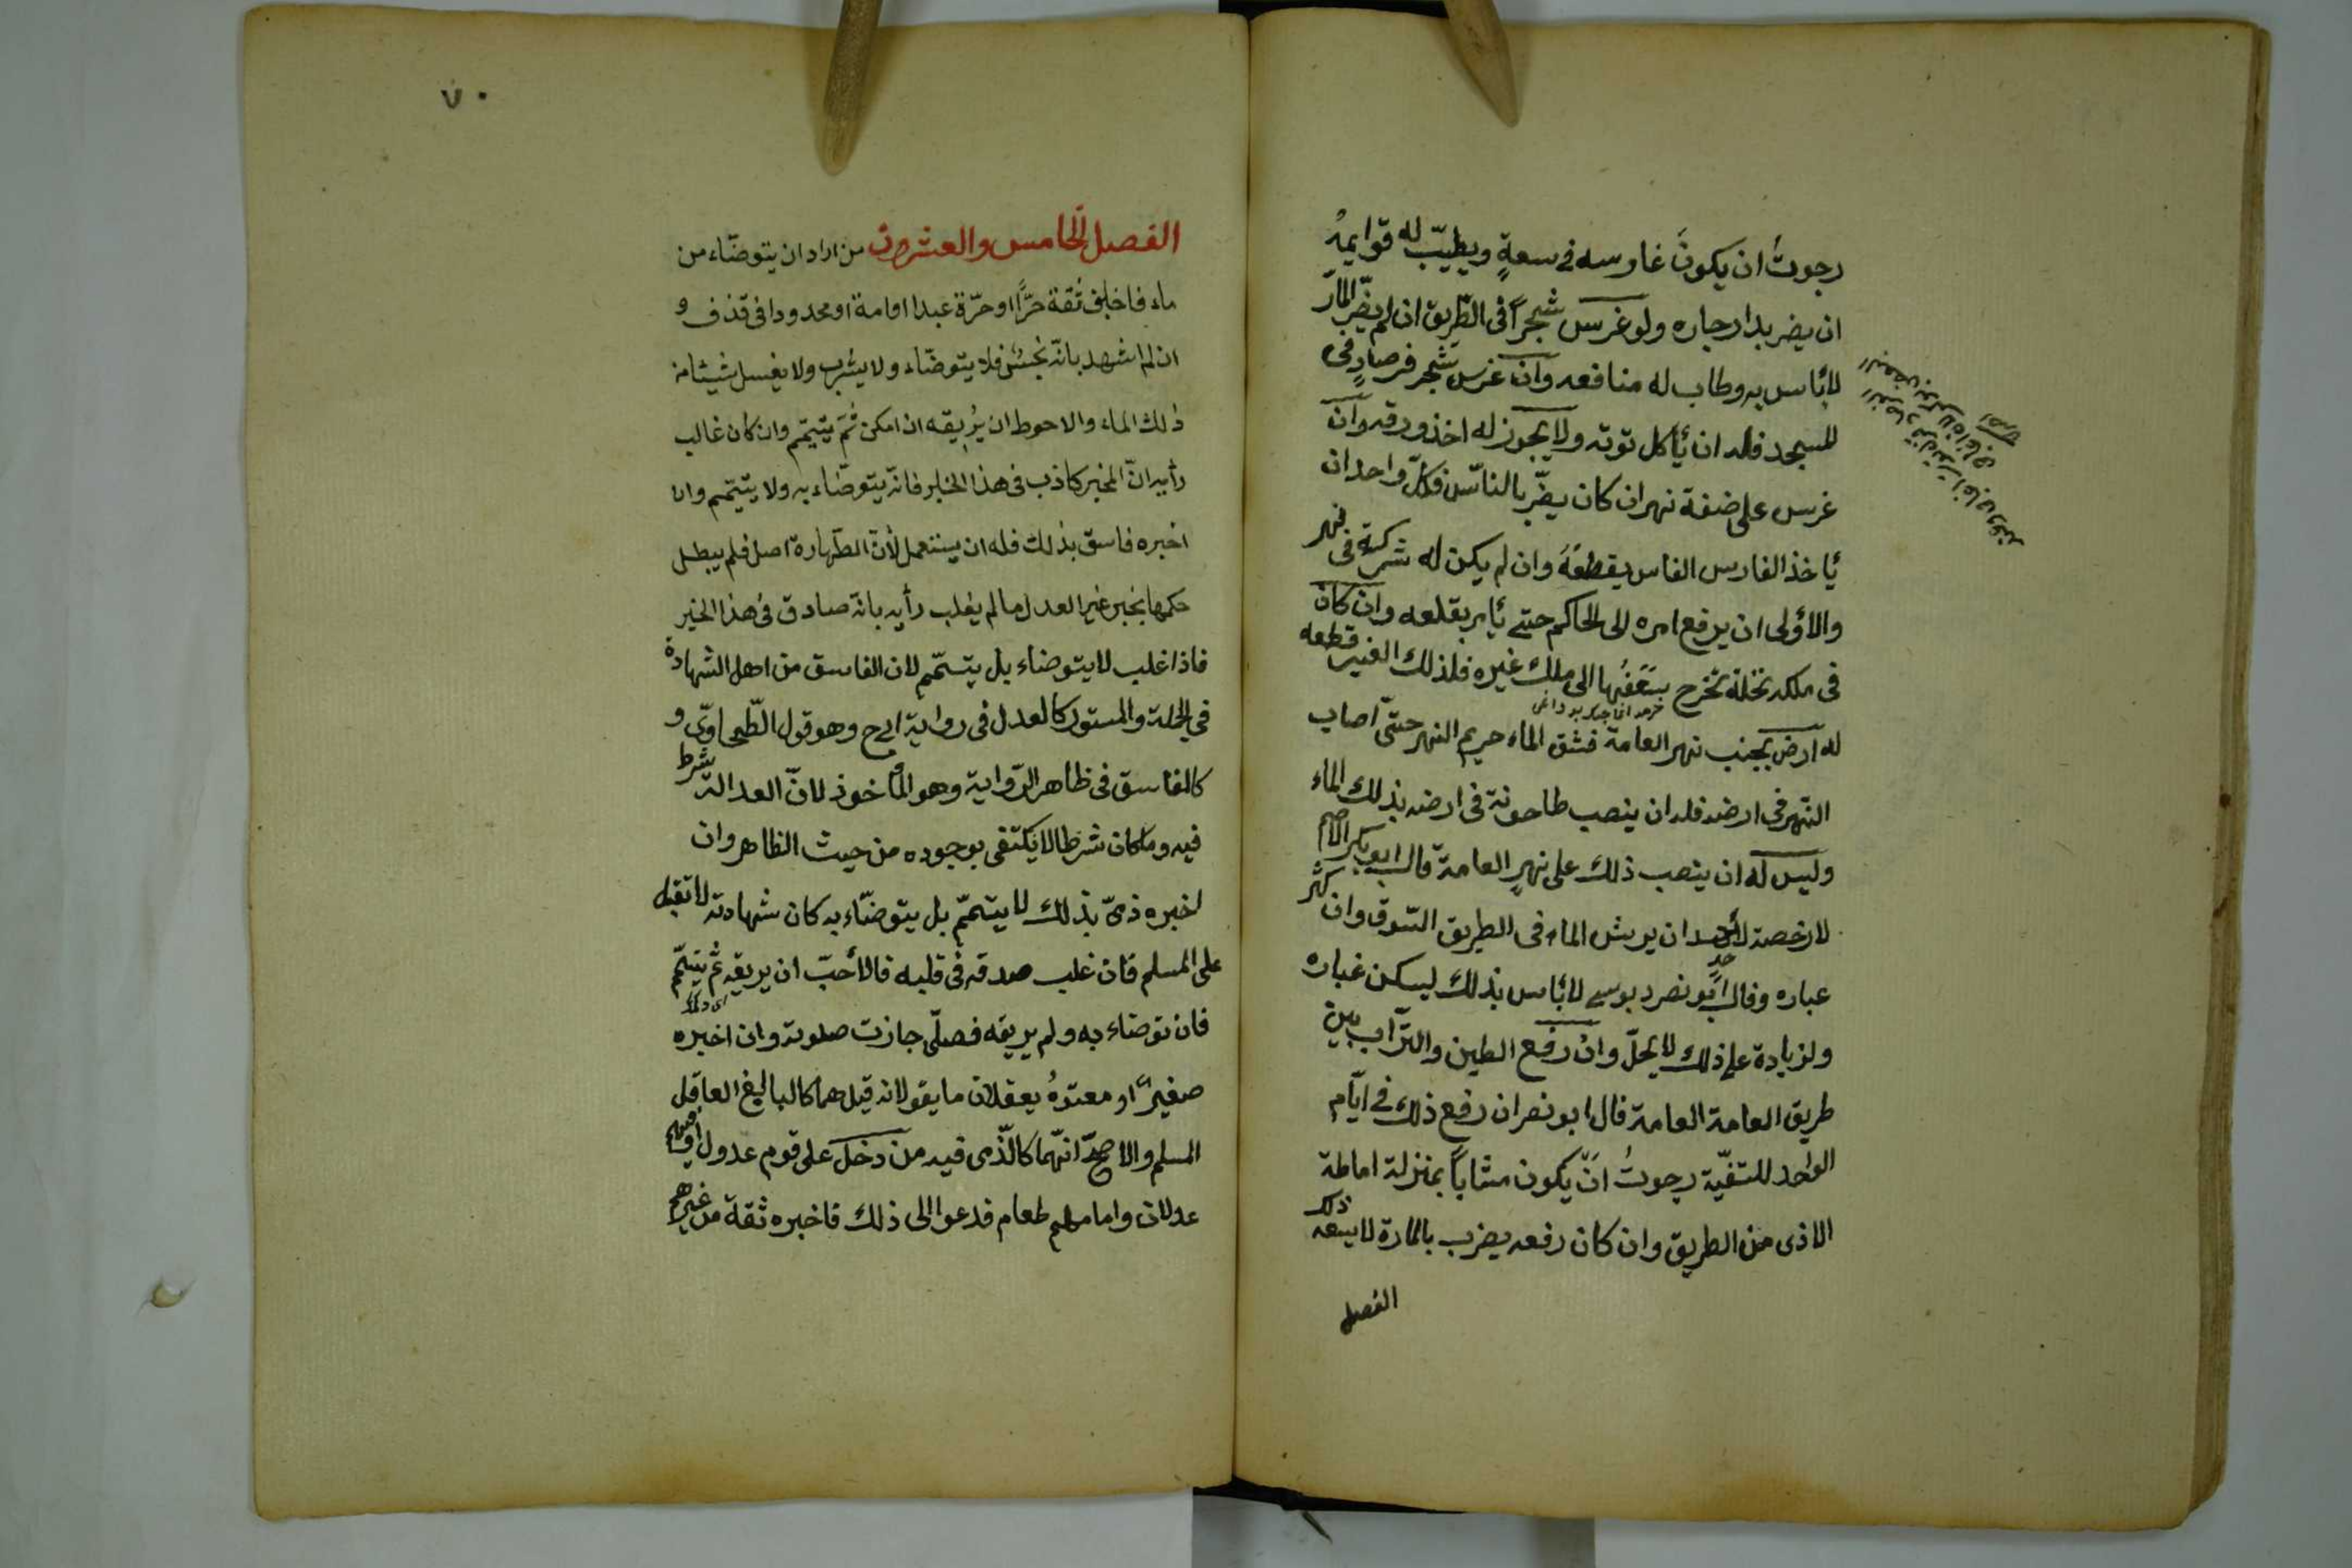 رجوتُ ان يكونَ غارسه فى سعةٍ ويطيبّ له قوايمهُ
ان يضر بدار جاره ولو غرس شجراً فى الطّريق ان لم يضّر المارّ
لابأس به وطاب له منافعه وان غرس شجر فرصادٍ فى
المسجد فله ان يأكل توته ولا يجوز له اخذ ورقه وان
غرس على ضفة نهر ان كان يضّر بالنّاس فكلّ واحد ان
يأخذ الفارس الفاس يقطعَهُ وان لم يكن له شركة فى نهر
والأولى ان يرفع امره الى الحاكم حتى يأمر بقلعه وان كان
فى ملكه نخلة تخرج بسَعَفِها الى ملك غيره فلذلك الغير قطعه
له ارض بجنب نهر العامة فشق الماء حريم النهر حتّى اصاب
النّهر فى ارضه فله ان ينصب طاحونة فى ارضه بذلك الماء
وليس له ان ينصب ذلك على نهر العامة قال ابو بكر الاصم
لارخصة لأحد ان يرش الماء فى الطريق السّوق وان كثر
غباره وقال ابو نصر دبوسى لابأس بذلك ليسكن غباره
ولزيادة على ذلك لا يحلّ وان رفع الطين والتّراب بين
طريق العامة العامة قال ابو نصر ان رفع ذلك فى ايّام
الواحد للتنقيّة رجوتُ انّ يكون مثاباً بمنزلة اماطة
الاذى من الطريق وان كان رفعه يضرب بالمارة لايسعه ذلك
الفصل
٧٠
الفصل الخامس والعشرون من اراد ان يتوضّاء من
ماء فاخبره ثقة حرًّا او حرّة عبدا او امة او محدودا فى قذف و
ان لم اشهد بانّه نجسٌ فلا يتوضّاء ولا يشرب ولا يغسل شيئا من
ذلك الماء والاحوط ان يُريقه ان امكن ثمّ يتيمّم وان كان غالب
رأيه انّ المخبر كاذب فى هذا الخبر فانّه يتوضّاء به ولا يتيمّم وان
اخبره فاسق بذلك فله ان يستعمل لأنّ الطّهارة اصل فلم يبطل
حكمها بخبر غير العدل مالم يغلب رأيه بانّه صادق فى هذا الخبر
فاذا غلب لا يتوضاء بل يتيمّم لان الفاسق من اهل الشهادة
في الجملة والمستور كالعدل فى رواية وهو قول الطّحاوّى و
كالفاسق فى ظاهر الرّواية وهو المأخوذ لانّ العدالة شرط
فيه وما كان شرطا لا يكتفى بوجوده من حيث الظاهر وان
اخبره ذمّى بذلك لا يتيمّم بل يتوضّاء به كان شهادته لا تقبل
على المسلم فان غلب صدقه فى قلبه فالأحبّ ان يريقه ثم يتيمّم
فان توضاء به ولم يريقه فصلّى جازت صلوته وان اخبره
صغيرٌ او معتوهُ يعقلان ما يقولانه قيل هما كالبالغ العاقل
المسلم والاصحّ انّهما كالذّمى فيه من دخل على قوم عدول او
عدلان وامامهم طعام فدعوا الى ذلك فاخبره ثقة من غيرهم